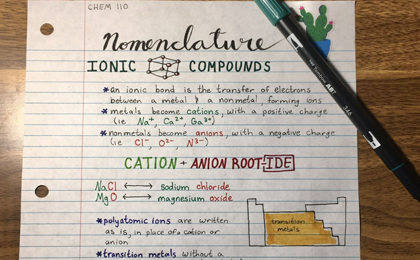 CHEM 110
Nomenclature
IONIC COMPOUNDS
*an ionic bond is the transfer of electrons
between a metal & a nonmetal, forming ions
*metals become cations, with a positive charge
(ie Na⁺, Ca²⁺, Ga³⁺)
*nonmetals become anions, with a negative charge
(ie Cl⁻, O²⁻, N³⁻)
CATION + ANION ROOT-IDE
NaCl ⟷ sodium chloride
MgO ⟷ magnesium oxide
*polyatomic ions are written
as is, in place of a cation or
anion
transition
metals
*transition metals without a